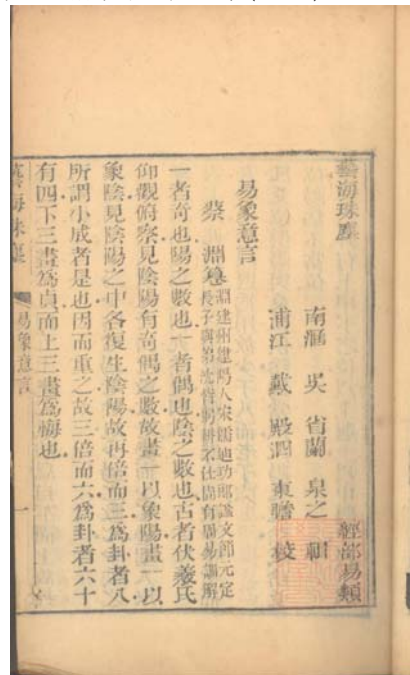 藝海珠塵 經部易類
南滙 吳省蘭 泉之 輯
浦江 戴殿泗 東瞻 校
易象意言
蔡淵撰 淵建州建陽人宋儒迪功郎謚文節元定
長子與弟沈皆躬耕不仕尚有周易訓解
一者奇也陽之數也--者偶也陰之數也古者伏羲氏
仰觀俯察見陰陽有奇偶之數故畫一以象陽畫--以
象陰見陰陽之中各復生陰陽故再倍而三爲卦者八
所謂小成者是也因而重之故三倍而六爲卦者六十
有四下三畫爲貞而上三畫爲悔也
藝海珠塵 易象意言 一